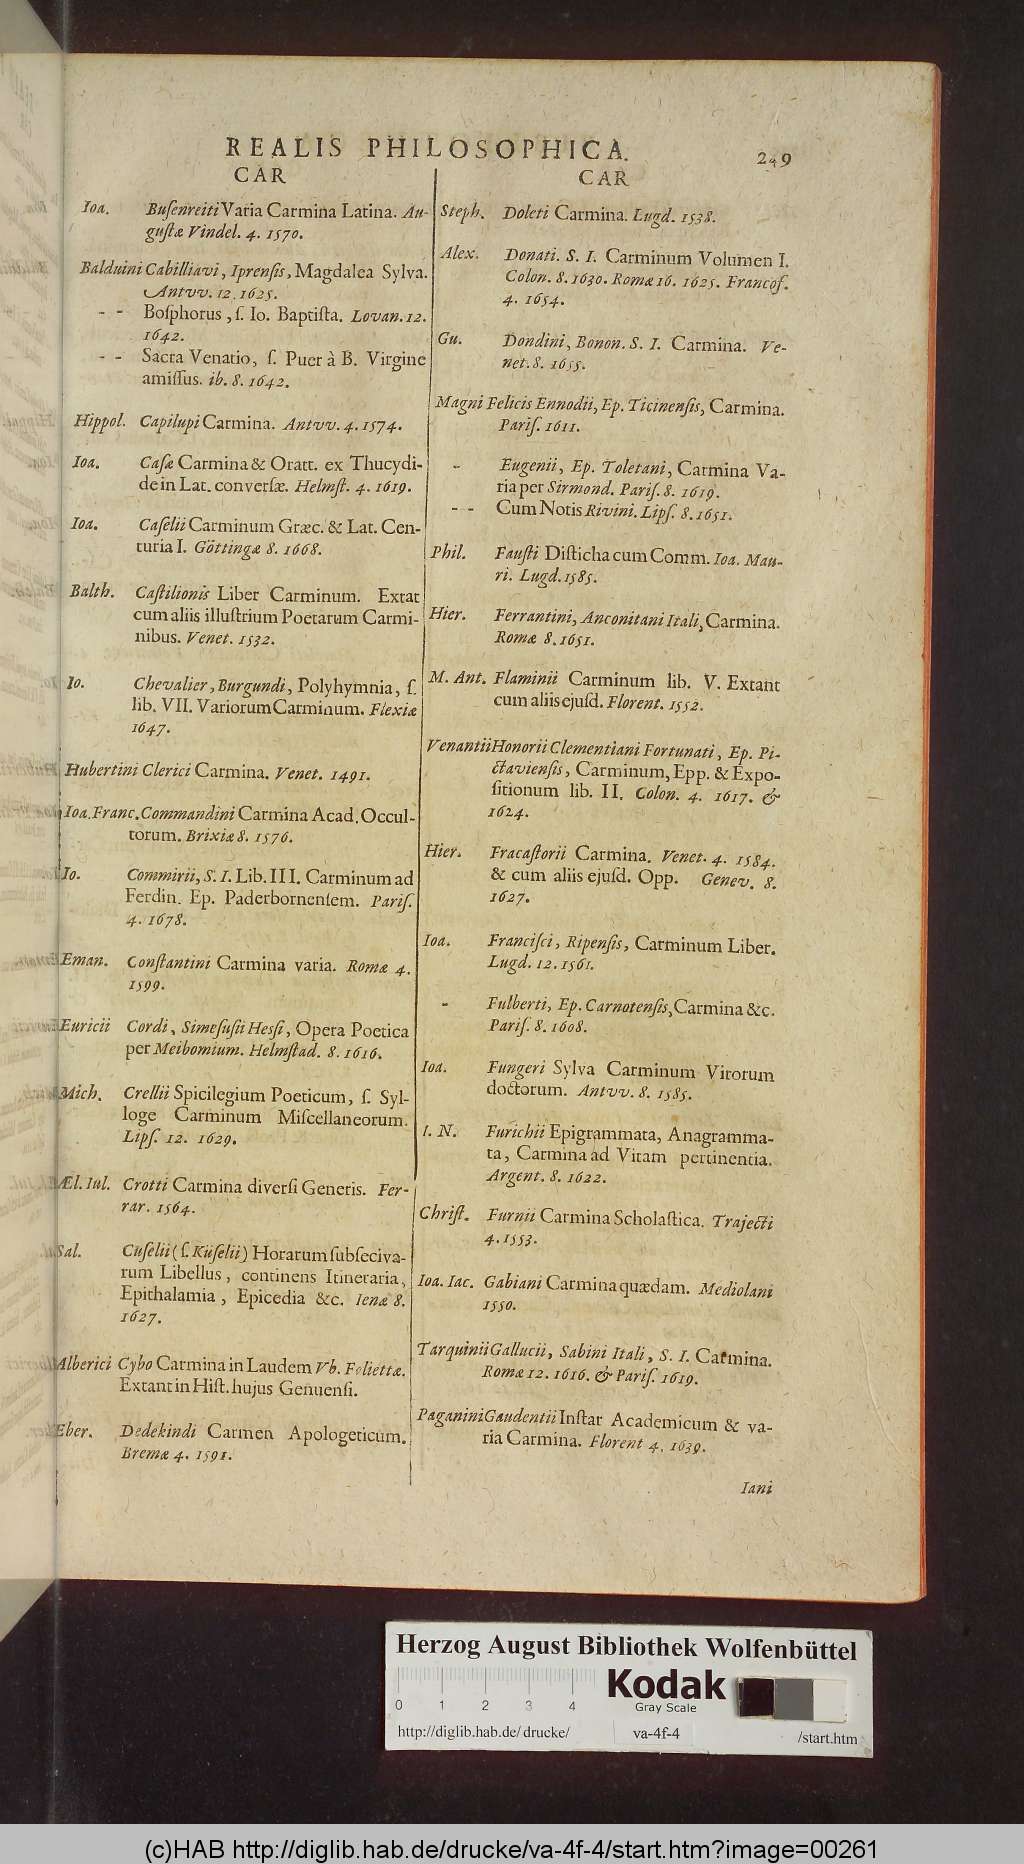 REALIS PHILOSOPHICA.
249
CAR
Ioa. Buſenreiti Varia Carmina Latina. Au-
guſtæ Vindel. 4. 1570.
Balduini Cabilliavi, Iprenſis, Magdalea Sylva.
Antvv. 12. 1625.
- - Boſphorus, ſ. Io. Baptiſta. Lovan. 12.
1642.
- - Sacra Venatio, ſ. Puer à B. Virgine
amiſſus. ib. 8. 1642.
Hippol. Capilupi Carmina. Antvv. 4. 1574.
Ioa. Caſæ Carmina & Oratt. ex Thucydi-
de in Lat. converſæ. Helmſt. 4. 1619.
Ioa. Caſelii Carminum Græc. & Lat. Cen-
turia I. Göttingæ 8. 1668.
Balth. Caſtilionis Liber Carminum. Extat
cum aliis illuſtrium Poetarum Carmi-
nibus. Venet. 1532.
Io. Chevalier, Burgundi, Polyhymnia, ſ.
lib. VII. Variorum Carminum. Flexiæ
1647.
Hubertini Clerici Carmina. Venet. 1491.
Ioa. Franc. Commandini Carmina Acad. Occul-
torum. Brixiæ 8. 1576.
Io. Commirii, S. I. Lib. III. Carminum ad
Ferdin. Ep. Paderbornenſem. Pariſ.
4. 1678.
Eman. Conſtantini Carmina varia. Romæ 4.
1599.
Euricii Cordi, Simeſuſii Heſſi, Opera Poetica
per Meibomium. Helmſtad. 8. 1616.
Mich. Crellii Spicilegium Poeticum, ſ. Syl-
loge Carminum Miſcellaneorum.
Lipſ. 12. 1629.
Æl. Iul. Crotti Carmina diverſi Generis. Fer-
rar. 1564.
Sal. Cuſelii (ſ. Küſelii) Horarum ſubſeciva-
rum Libellus, continens Itineraria,
Epithalamia, Epicedia &c. Ienæ 8.
1627.
Alberici Cybo Carmina in Laudem Vb. Foliettæ.
Extant in Hiſt. hujus Genuenſi.
Eber. Dedekindi Carmen Apologeticum.
Bremæ 4. 1591.
CAR
Steph. Doleti Carmina. Lugd. 1538.
Alex. Donati. S. I. Carminum Volumen I.
Colon. 8. 1630. Romæ 16. 1625. Francof.
4. 1654.
Gu. Dondini, Bonon. S. I. Carmina. Ve-
net. 8. 1655.
Magni Felicis Ennodii, Ep. Ticinenſis, Carmina.
Pariſ. 1611.
- Eugenii, Ep. Toletani, Carmina Va-
ria per Sirmond. Pariſ. 8. 1619.
- - Cum Notis Rivini. Lipſ. 8. 1651.
Phil. Fauſti Diſticha cum Comm. Ioa. Mau-
ri. Lugd. 1585.
Hier. Ferrantini, Anconitani Itali, Carmina.
Romæ 8. 1651.
M. Ant. Flaminii Carminum lib. V. Extant
cum aliis ejuſd. Florent. 1552.
Venantii Honorii Clementiani Fortunati, Ep. Pi-
ctavienſis, Carminum, Epp. & Expo-
ſitionum lib. II. Colon. 4. 1617. &
1624.
Hier. Fracaſtorii Carmina. Venet. 4. 1584.
& cum aliis ejuſd. Opp. Genev. 8.
1627.
Ioa. Franciſci, Ripenſis, Carminum Liber.
Lugd. 12. 1561.
- Fulberti, Ep. Carnotenſis, Carmina &c.
Pariſ. 8. 1608.
Ioa. Fungeri Sylva Carminum Virorum
doctorum. Antvv. 8. 1585.
I. N. Furichii Epigrammata, Anagramma-
ta, Carmina ad Vitam pertinentia.
Argent. 8. 1622.
Chriſt. Furnii Carmina Scholaſtica. Trajecti
4. 1553.
Ioa. Iac. Gabiani Carmina quædam. Mediolani
1550.
Tarquinii Gallucii, Sabini Itali, S. I. Carmina.
Romæ 12. 1616. & Pariſ. 1619.
Paganini Gaudentii Inſtar Academicum & va-
ria Carmina. Florent 4. 1639.
Iani
Herzog August Bibliothek Wolfenbüttel
0 1 2 3 4
Kodak
Gray Scale
http://diglib.hab.de/drucke/ va-4f-4 /start.htm
(c)HAB http://diglib.hab.de/drucke/va-4f-4/start.htm?image=00261